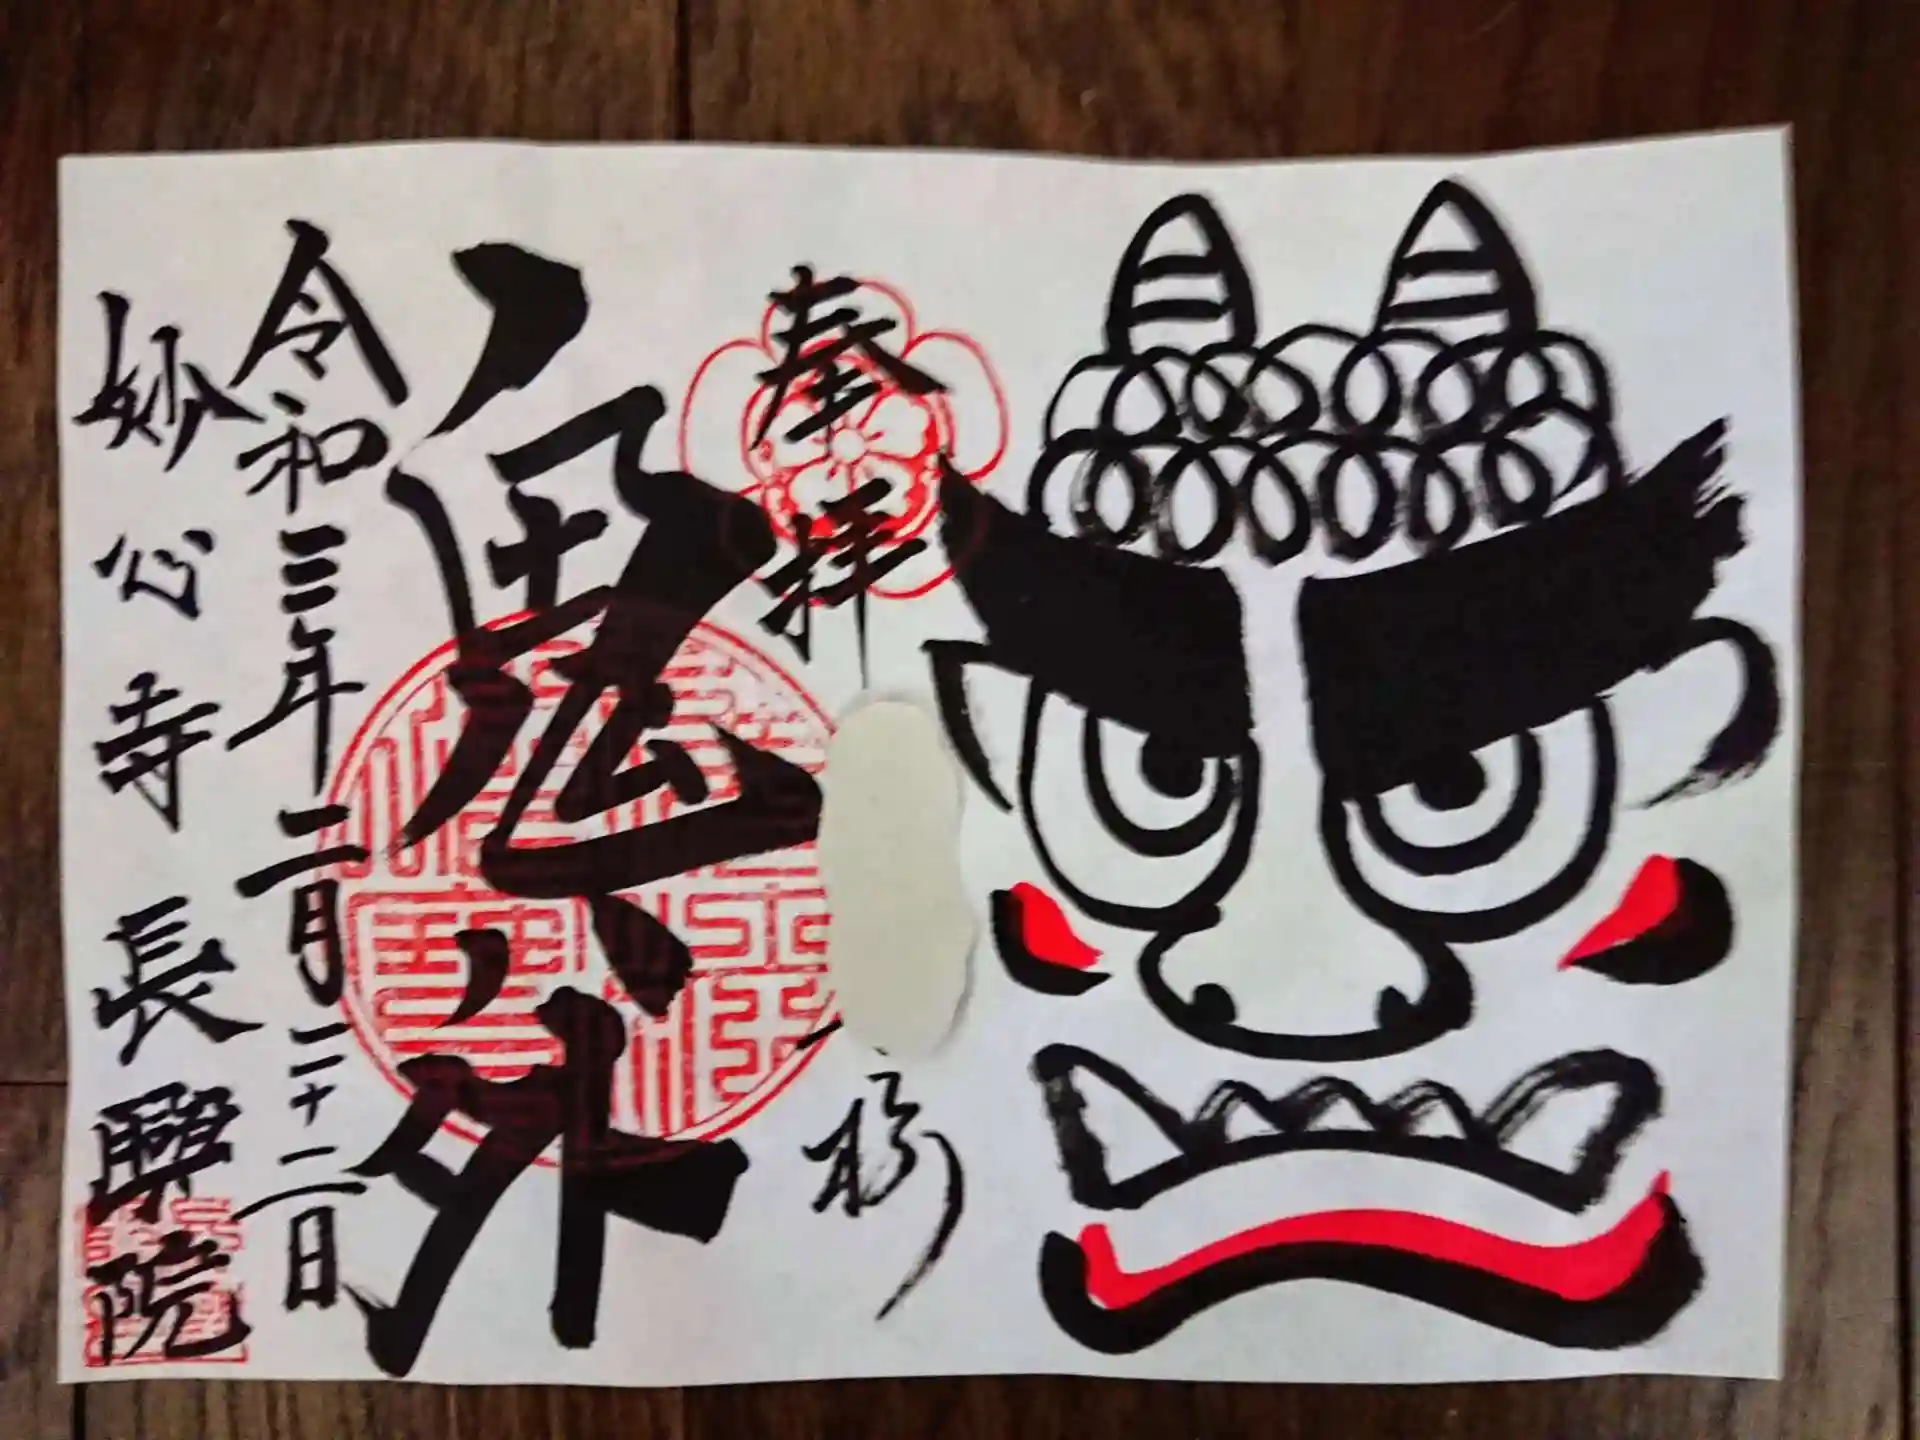 奉拝
様
鬼ハ外
令和三年二月二十二日
妙心寺 長興院